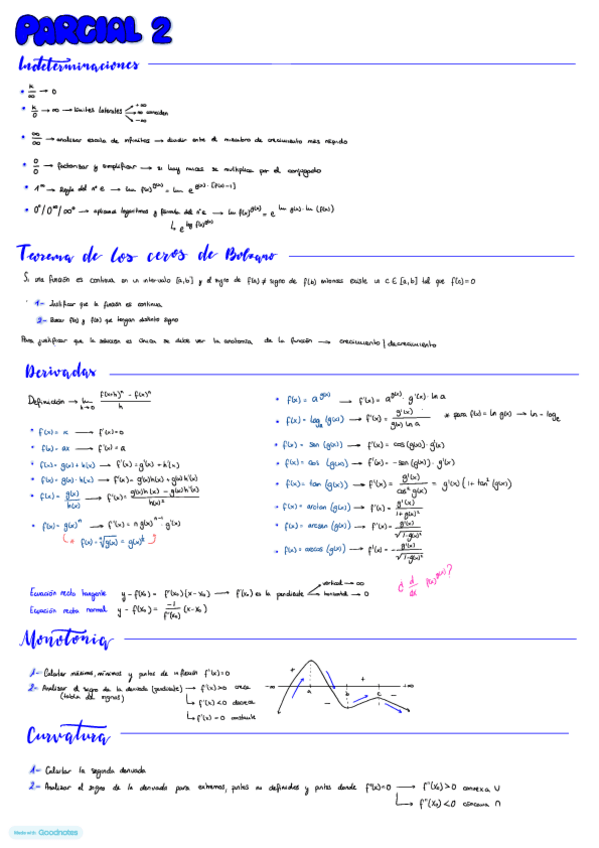 PARCIAL 2
Indeterminaciones
• k/∞ → 0
• k/0 → ∞ → límites laterales → +∞ → ∞ coinciden → -∞
• ∞/∞ → analizar escala de infinitos → dividir ente el miembro de crecimiento más rápido
• 0/0 → factorizar y simplificar → si hay raíces se multiplica por el conjugado
• 1^∞ → regla del nº e → lim f(x)^g(x) = lim e^g(x)·[f(x)-1]
• 0^0/0^∞/∞^0 → aplicamos logaritmos y fórmula del nº e → lim f(x)^g(x) = e^lim g(x)·ln (f(x))
↳ e^log f(x)^g(x)
Teorema de los ceros de Bolzano
Si una función es continua en un intervalo [a,b] y el signo de f(a) ≠ signo de f(b) entonces existe un c ∈ [a,b] tal que f(c)=0
1- Justificar que la función es continua
2- Buscar f(a) y f(b) que tengan distinto signo
Para justificar que la solución es única se debe ver la monotonía de la función → crecimiento | decrecimiento
Derivadas
Definición → lim h→0 f(x+h)^n - f(x)^n / h
• f(x) = k → f'(x)=0
• f(x) = ax → f'(x) = a
• f(x) = g(x) + h(x) → f'(x) = g'(x) + h'(x)
• f(x) = g(x) · h(x) → f'(x) = g'(x)h(x) + g(x)h'(x)
• f(x) = g(x)/h(x) → f'(x) = g'(x)h(x) - g(x)h'(x) / h(x)²
• f(x) = g(x)^n → f'(x) = n g(x)^n-1 · g'(x)
• f(x) = a^g(x) → f'(x) = a^g(x) · g'(x) · ln a
• f(x) = log a (g(x)) → f'(x) = g'(x) / g(x) ln a * para f(x) = ln g(x) → ln = log e
• f(x) = sen (g(x)) → f'(x) = cos (g(x)) · g'(x)
• f(x) = cos (g(x)) → f'(x) = -sen (g(x)) · g'(x)
• f(x) = tan (g(x)) → f'(x) = g'(x) / cos² g(x) = g'(x) (1 + tan² (g(x))
• f(x) = arctan (g(x)) → f'(x) = g'(x) / 1+g(x)²
• f(x) = arcsen (g(x)) → f'(x) = g'(x) / √1-g(x)²
• f(x) = arccos (g(x)) → f'(x) = - g'(x) / √1-g(x)²
¿ d/dx f(x)^g(x)?
Ecuación recta tangente y - f(x₀) = f'(x₀) (x - x₀) → f'(x₀) es la pendiente → vertical → ∞ → horizontal → 0
Ecuación recta normal y - f(x₀) = -1/f'(x₀) (x-x₀)
Monotonía
1- Calcular máximos, mínimos y puntos de inflexión f'(x)=0
2- Analizar el signo de la derivada (pendiente) → f'(x)>0 crece
(tabla de signos)
↳ f'(x)<0 decrece
↳ f'(x) = 0 constante
-∞ + a - b + c - +∞
Curvatura
1- Calcular la segunda derivada
2- Analizar el signo de la derivada para extremos, puntos no definidos y puntos donde f''(x)=0 → f''(x₀)>0 convexa ∪
↳ f''(x₀)<0 cóncava ∩
Made with Goodnotes